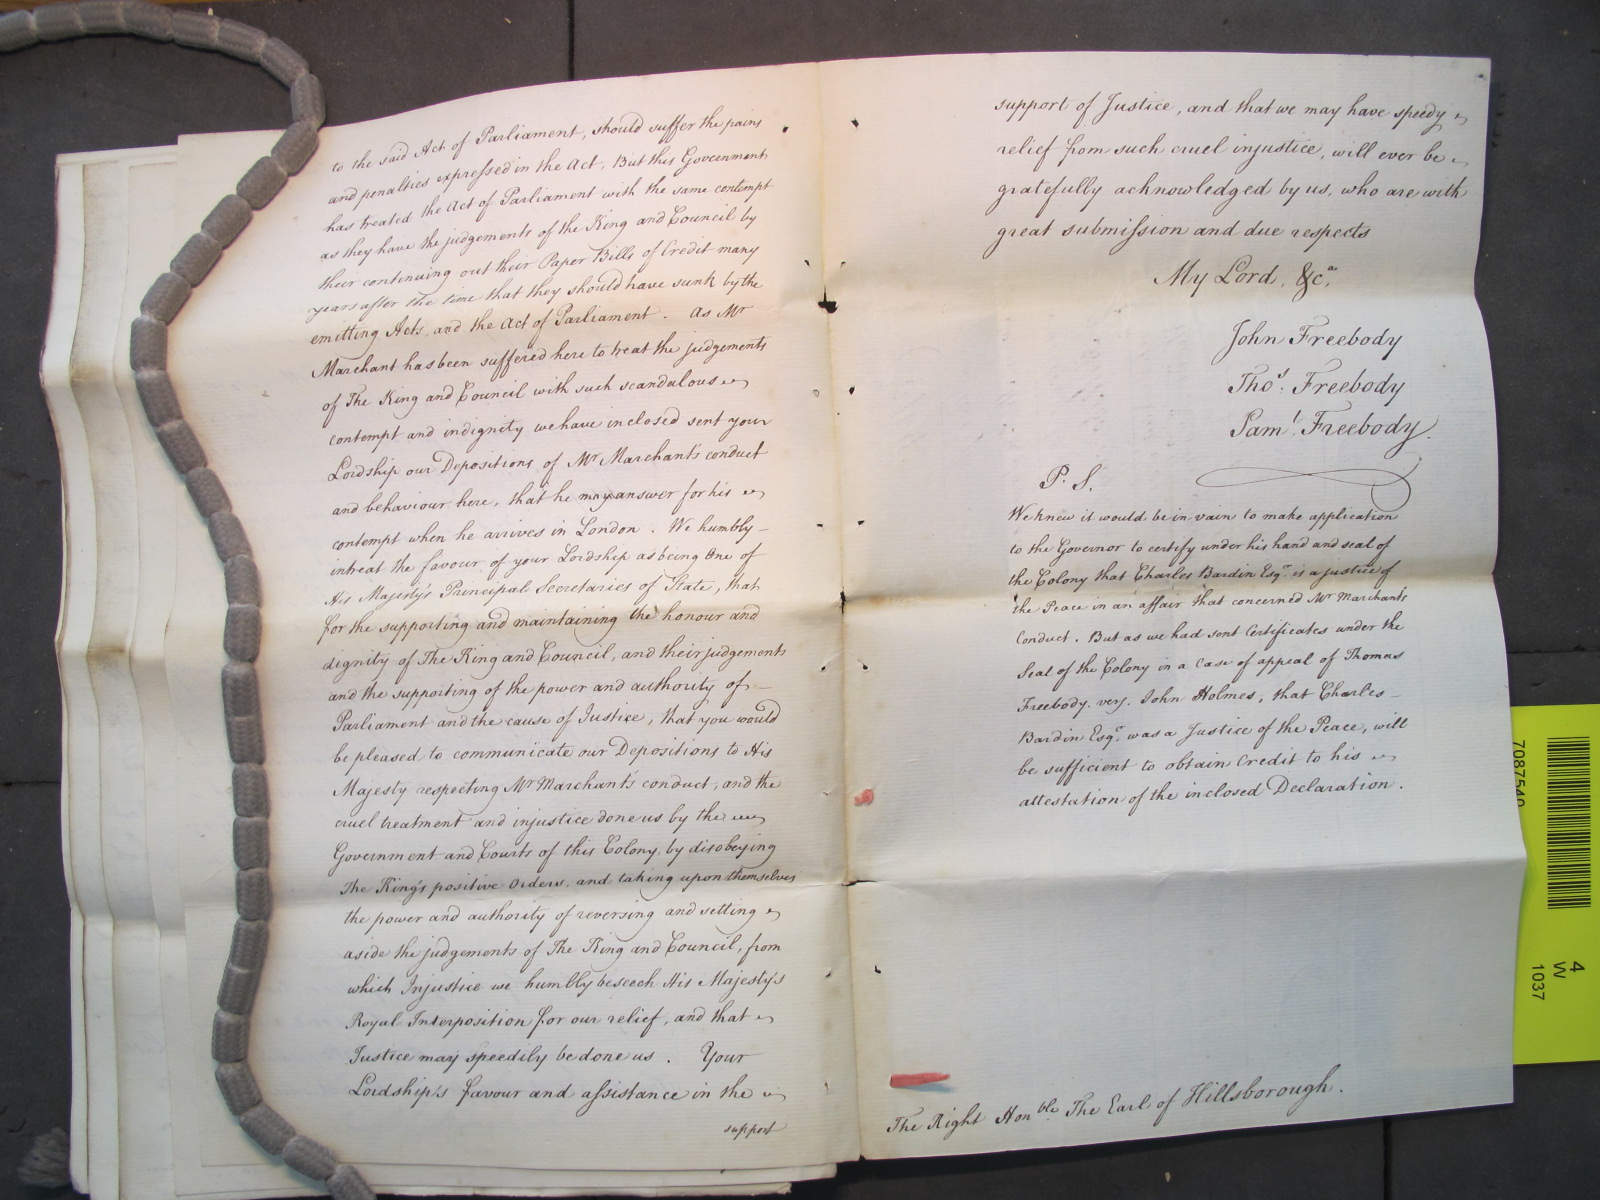 to the said Act of Parliament, should suffer the pains
and penalties expressed in the Act, But this Government
has treated the Act of Parliament with the same contempt
as they have the judgements of the King and Council by
their continuing out their Paper Bills of Credit many
years after the time that they should have sunk by the
emitting Acts, and the Act of Parliament. As Mr
Marchant has been suffered here to treat the judgements
of The King and Council with such scandalous
contempt and indignity we have inclosed sent your
Lordship our Depositions of Mr Marchant's conduct
and behaviour here, that he may answer for his
contempt when he arrives in London. We humbly
intreat the favour of your Lordship as being One of
His Majesty's Principal Secretaries of State, that
for the supporting and maintaining the honour and
dignity of The King and Council, and their judgements
and the supporting of the power and authority of
Parliament and the cause of Justice, that you would
be pleased to communicate our Depositions to His
Majesty respecting Mr Marchant's conduct, and the
cruel treatment and injustice done us by the
Government and Courts of this Colony, by disobeying
The King's positive Orders, and taking upon themselves
the power and authority of reversing and setting
aside the judgements of The King and Council, from
which Injustice we humbly beseech His Majesty's
Royal Interposition for our relief, and that
Justice may speedily be done us. Your
Lordship's favour and assistance in the
support
support of Justice, and that we may have speedy
relief from such cruel injustice, will ever be
gratefully acknowledged by us, who are with
great submission and due respects
My Lord, &ca.
John Freebody
Thos. Freebody
Saml. Freebody.
P. S.
We knew it would be in vain to make application
to the Governor to certify under his hand and seal of
the Colony that Charles Bardin Esqr. is a justice of
the Peace in an affair that concerned Mr Marchants
Conduct. But as we had sent Certificates under the
Seal of the Colony in a Case of appeal of Thomas
Freebody. vers. John Holmes, that Charles
Bardin Esqr. was a Justice of the Peace, will
be sufficient to obtain Credit to his
attestation of the inclosed Declaration.
The Right Honble. The Earl of Hillsborough.
7087540
4
W
1037